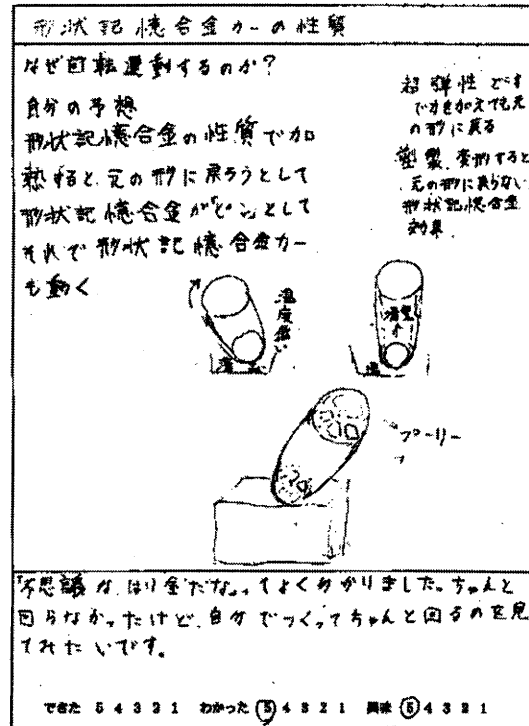 形状記憶合金カーの性質
なぜ回転運動するのか?
自分の予想
形状記憶合金の性質で加
熱すると、元の形に戻ろうとして
形状記憶合金がピンとして
それで形状記憶合金カー
も動く
超弾性 どこま
で力を加えても元
の形に戻る
塑製、変形すると
元の形に戻らない
形状記憶合金
効果
温度高い
プーリー
不思議な、はり金だな。ってよくわかりました。ちゃんと
回らなかったけど、自分でつくってちゃんと回るのを見
てみたいです。
できた 5 4 3 2 1 わかった 5 4 3 2 1 興味 5 4 3 2 1